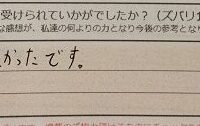 受けられていかがでしたか？（ズバリ
な感想が、私達の何よりの力となり今後の参考とな
かったです。